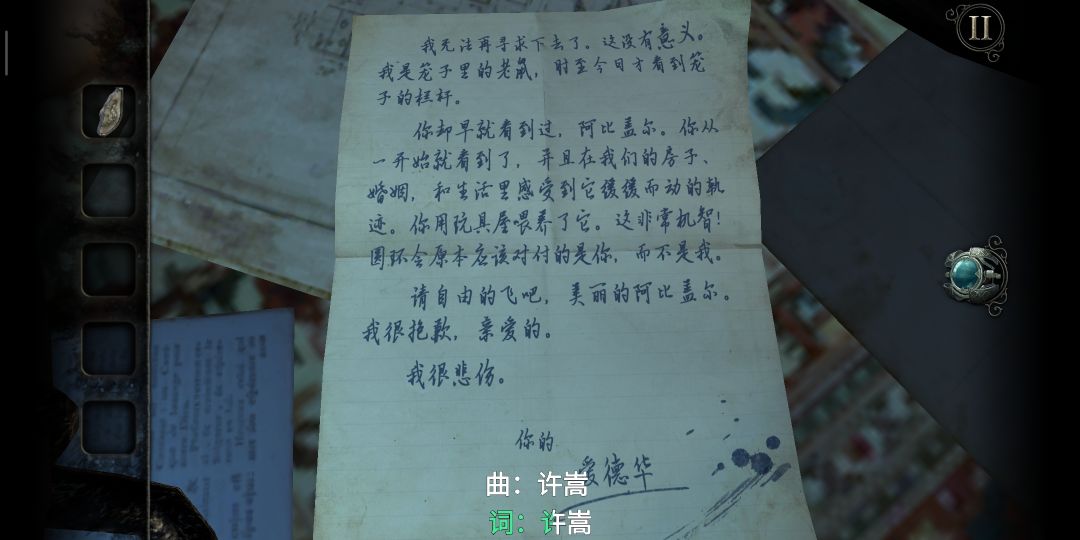 II
我无法再寻求下去了。这没有意义。
我是笼子里的老鼠，时至今日才看到笼
子的栏杆。
你却早就看到过，阿比盖尔。你从
一开始就看到了，并且在我们的房子、
婚姻，和生活里感受到它缓缓而动的轨
迹。你用玩具屋喂养了它。这非常机智！
圆环会原本应该对付的是你，而不是我。
请自由的飞吧，美丽的阿比盖尔。
我很抱歉，亲爱的。
我很悲伤。
你的
爱德华
曲：许嵩
词：许嵩